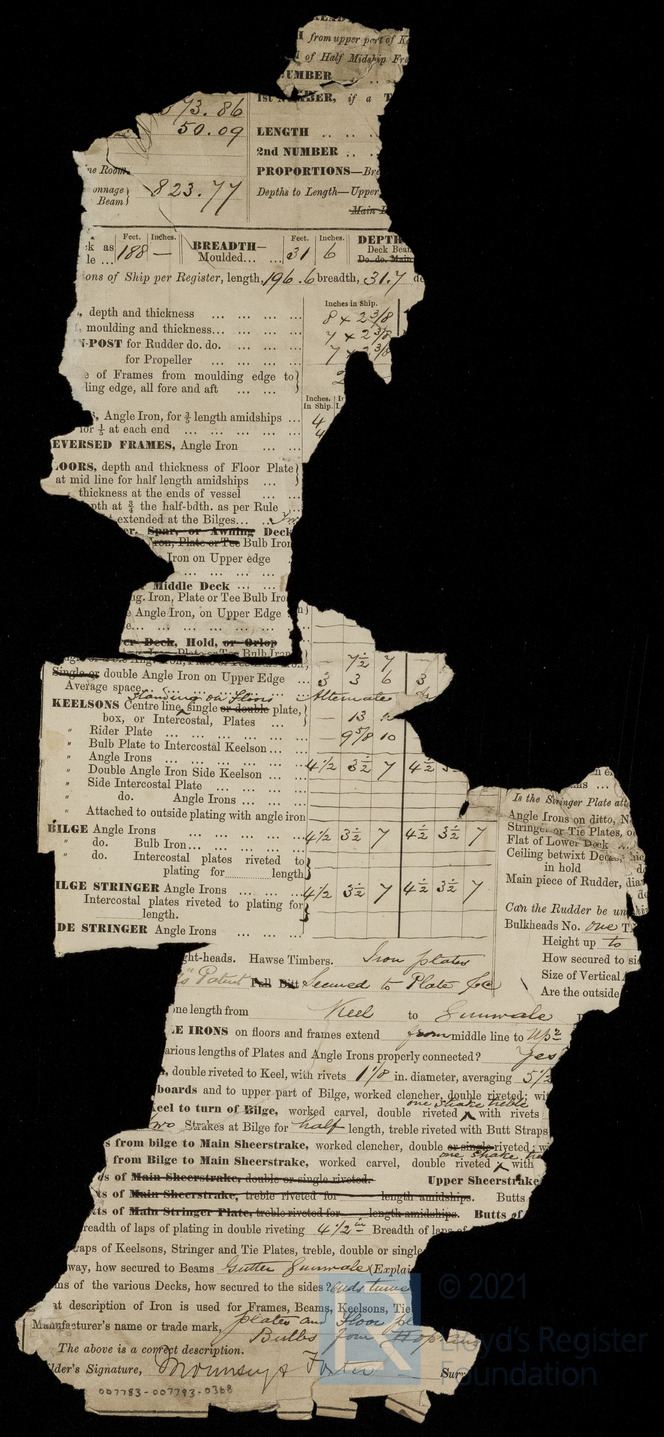 from upper part of
of Half Midship Fr
UMBER
1st NUMBER, if a T
73.86
50.09
LENGTH .. ..
2nd NUMBER .. ..
PROPORTIONS—Bre
ne Room
onnage Beam } 823.77
Depths to Length—Upper
Main D
ck as
le ...
Feet. Inches.
188 —
BREADTH—
Moulded... ...
Feet. Inches.
31 6
DEPTH
Deck Bea
Do. do. Main
ons of Ship per Register, length, 196.6 breadth, 31.7 de
Inches in Ship.
, depth and thickness ... ... ... 8 x 2 3/8
, moulding and thickness... ... ... 7 x 2 3/8
N-POST for Rudder do. do. ... ... 7 x 2 3/8
for Propeller ... ...
e of Frames from moulding edge to }
ding edge, all fore and aft ... ...
Inches. In Ship.
s, Angle Iron, for 3/5 length amidships ... 4
for 1/5 at each end ... ... 4
EVERSED FRAMES, Angle Iron ... ...
LOORS, depth and thickness of Floor Plate }
at mid line for half length amidships ...
thickness at the ends of vessel ...
pth at 3/4 the half-bdth. as per Rule ...
t extended at the Bilges... ...
er, Spar, or Awning Deck
Iron, Plate or Tee Bulb Iron
e Iron on Upper edge
... ... ... ...
r Middle Deck ... ...
ng. Iron, Plate or Tee Bulb Iro
e Angle Iron, on Upper Edge
e... ... ... ...
er Deck, Hold, or Orlop
Iron, Plate or Tee Bulb Iron
7 1/2 7
Single or double Angle Iron on Upper Edge ... 3 3 6 3
Average space ... Alternate
Standing on floors
KEELSONS Centre line, single or double plate, }
box, or Intercostal, Plates ... — 13
" Rider Plate ... ... ... ... — 9 5/8 10
" Bulb Plate to Intercostal Keelson... ...
" Angle Irons ... ... ... ...
" Double Angle Iron Side Keelson ... ... 4 1/2 3 1/2 7 4 1/2
" Side Intercostal Plate ... ...
" do. Angle Irons ... ...
" Attached to outside plating with angle iron
BILGE Angle Irons ... ... ... 4 1/2 3 1/2 7 4 1/2 3 1/2 7
" do. Bulb Iron... ... ...
" do. Intercostal plates riveted to }
plating for length }
ILGE STRINGER Angle Irons ... ... 4 1/2 3 1/2 7 4 1/2 3 1/2 7
Intercostal plates riveted to plating for }
length.
DE STRINGER Angle Irons ... ...
Is the Stringer Plate att
Angle Irons on ditto, N
Stringer or Tie Plates, o
Flat of Lower Deck
Ceiling betwixt Decks,
in hold
Main piece of Rudder, dia
Can the Rudder be un
Bulkheads No. one T
Height up to
How secured to si
Size of Vertical
Are the outside
ght-heads. Hawse Timbers. Iron plates
's" Patent Pall Bitt Secured to Plate &c
one length from Keel to Gunwale
LE IRONS on floors and frames extend from middle line to Upr
arious lengths of Plates and Angle Irons properly connected? Yes
, double riveted to Keel, with rivets 1 1/8 in. diameter, averaging 5 1/2
boards and to upper part of Bilge, worked clencher, double riveted; wi
one strake treble
keel to turn of Bilge, worked carvel, double riveted with rivets
wo Strakes at Bilge for half length, treble riveted with Butt Straps
s from bilge to Main Sheerstrake, worked clencher, double or single riveted; w
one strake
from Bilge to Main Sheerstrake, worked carvel, double riveted with
ds of Main Sheerstrake, double or single riveted. Upper Sheerstrake
ts of Main Sheerstrake, treble riveted for length amidships. Butts
ts of Main Stringer Plate, treble riveted for length amidships. Butts of
readth of laps of plating in double riveting 4 1/2 in Breadth of laps of
raps of Keelsons, Stringer and Tie Plates, treble, double or single
way, how secured to Beams Gutter Gunwale (Explai
ms of the various Decks, how secured to the sides? ends turne
at description of Iron is used for Frames, Beams, Keelsons, Tie
Manufacturer's name or trade mark, plates and floor pl
Bulbs from Hop
The above is a correct description.
lder's Signature, Mounsey & Foster Surv
007783-007793-0368
© 2021
Lloyd's Register
Foundation